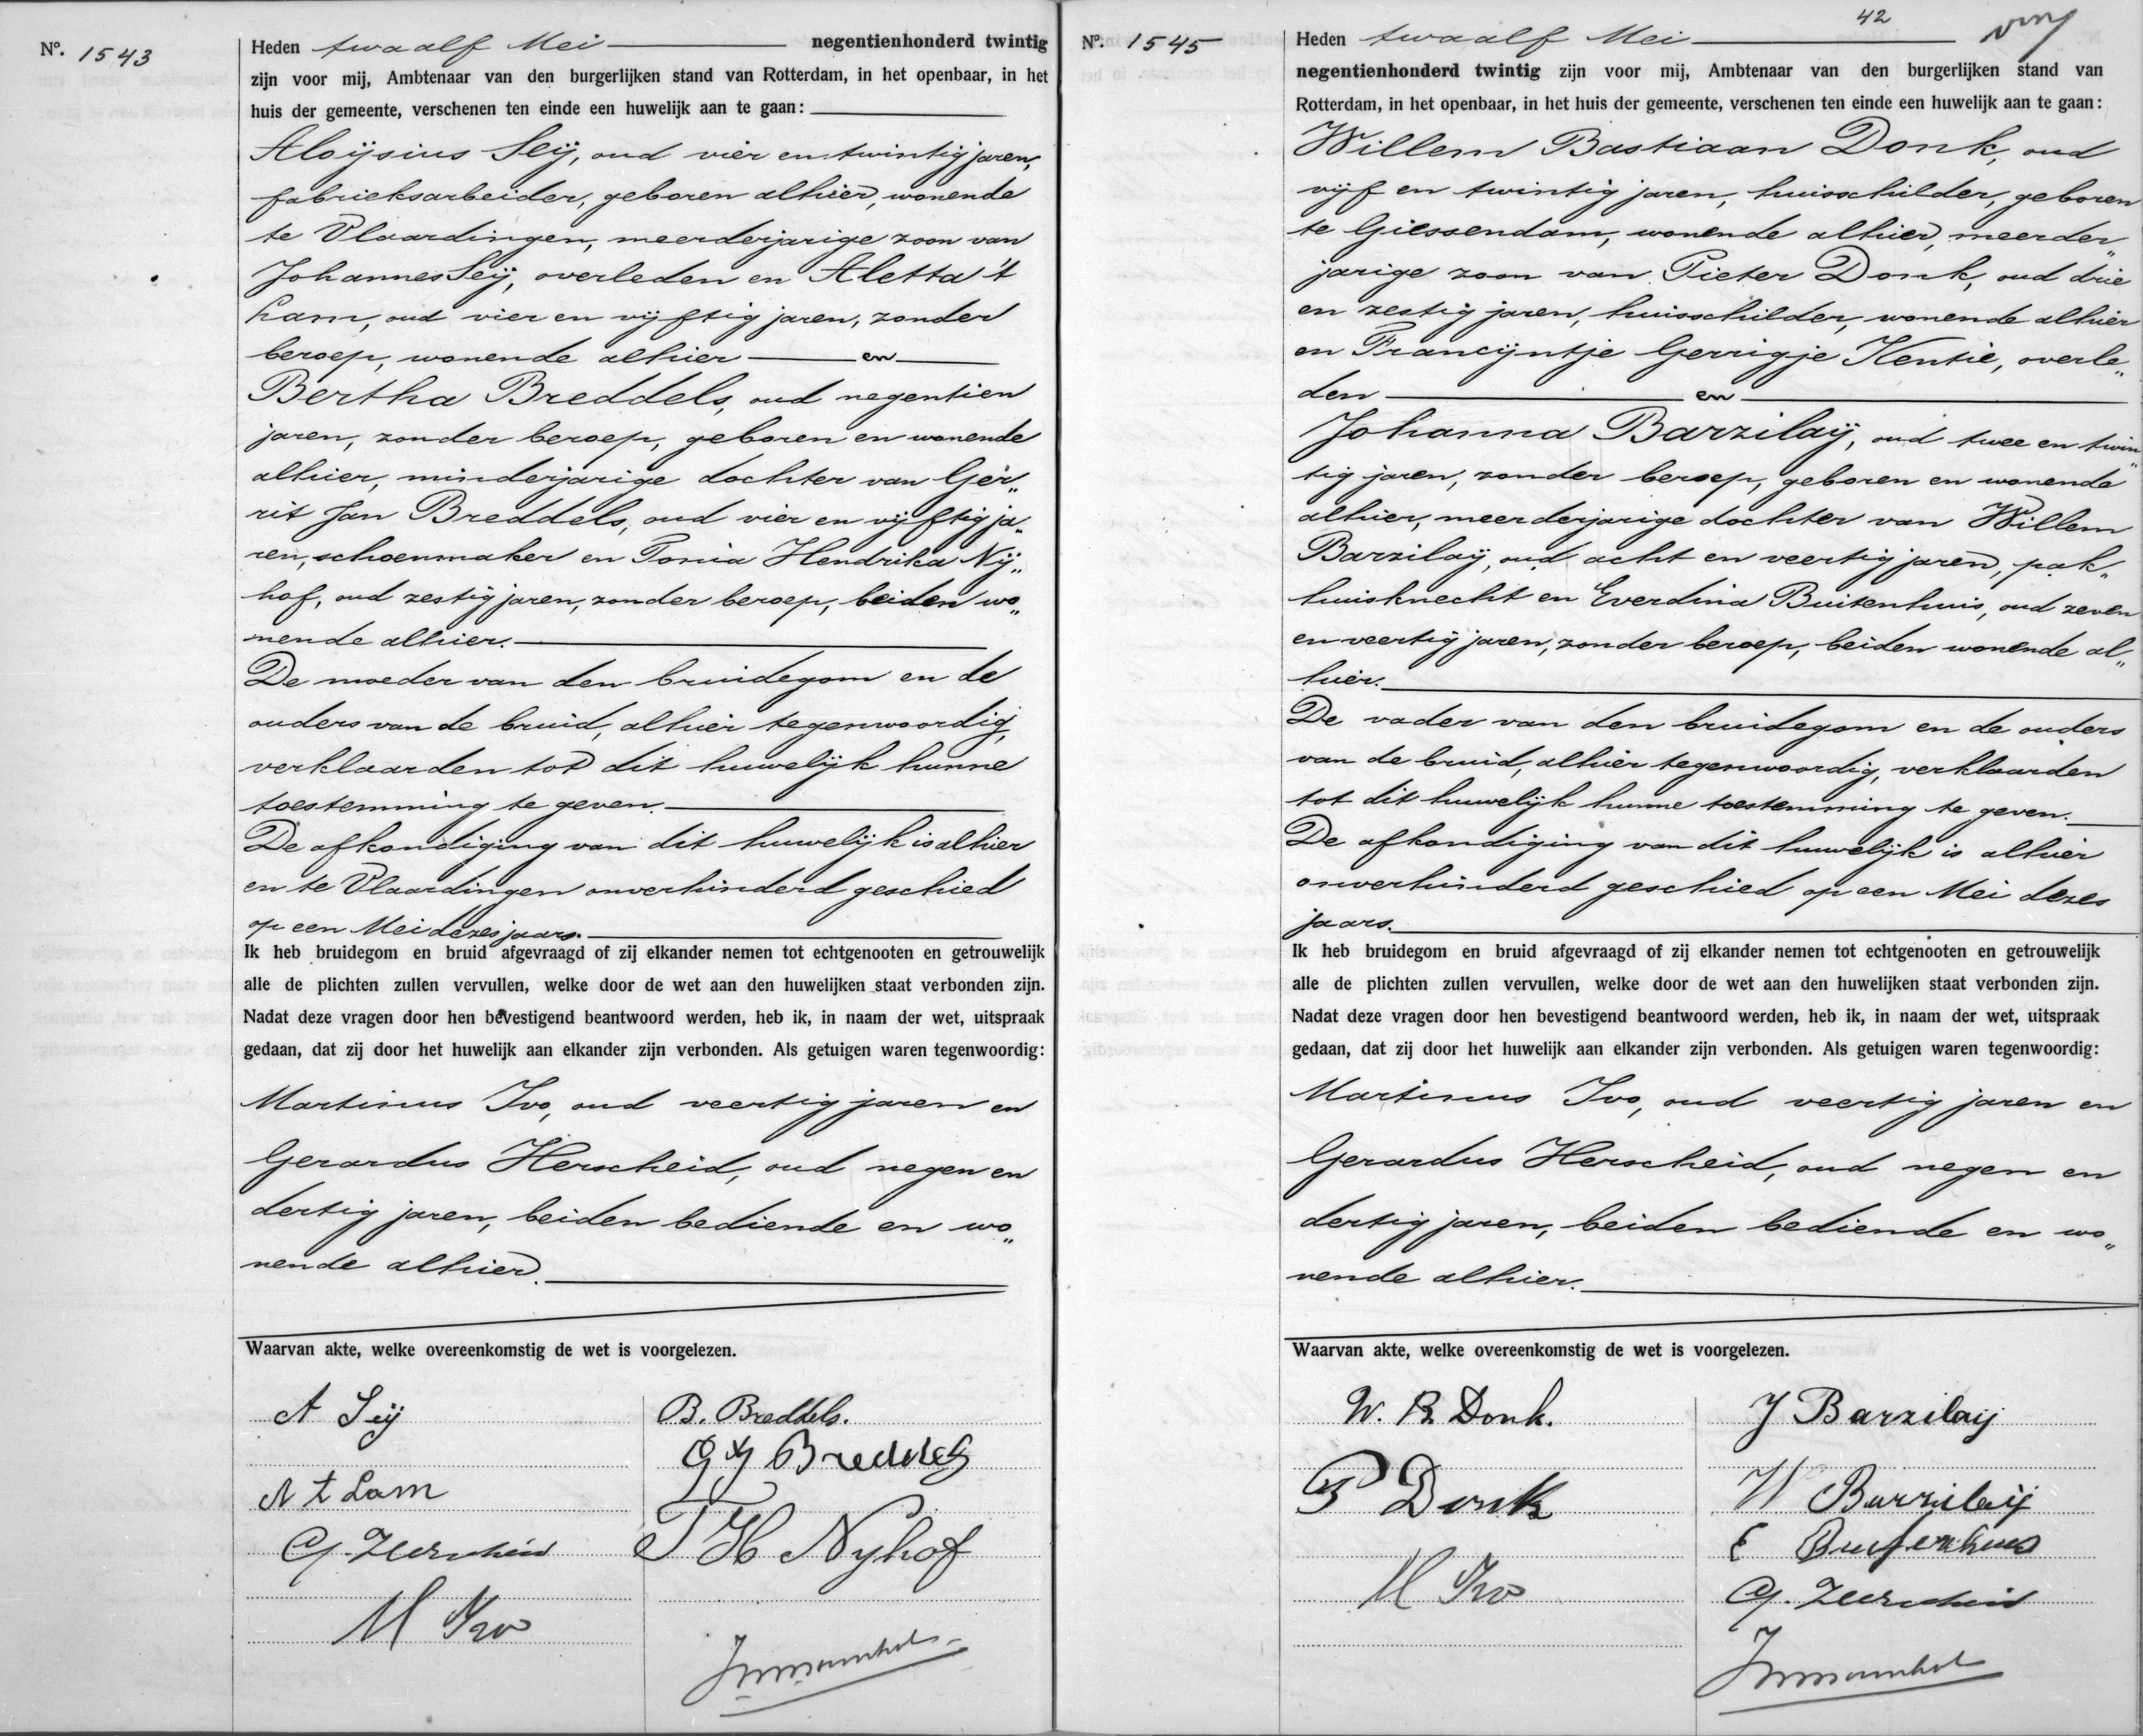 Nº. 1543
Heden twaalf Mei negentienhonderd twintig
zijn voor mij, Ambtenaar van den burgerlijken stand van Rotterdam, in het openbaar, in het
huis der gemeente, verschenen ten einde een huwelijk aan te gaan:
Aloijsius Seij, oud vier en twintig jaren,
fabrieksarbeider, geboren alhier, wonende
te Vlaardingen, meerderjarige zoon van
Johannes Seij, overleden en Aletta 't
Lam, oud vier en vijftig jaren, zonder
beroep, wonende alhier en
Bertha Breddels, oud negentien
jaren, zonder beroep, geboren en wonende
alhier, minderjarige dochter van Ger„
rit Jan Breddels, oud vier en vijftig ja„
ren, schoenmaker en Tonia Hendrika Nij„
hof, oud zestig jaren, zonder beroep, beiden wo„
nende alhier.
De moeder van den bruidegom en de
ouders van de bruid, alhier tegenwoordig,
verklaarden tot dit huwelijk hunne
toestemming te geven.
De afkondiging van dit huwelijk is alhier
en te Vlaardingen onverhinderd geschied
op een Mei dezes jaars.
Ik heb bruidegom en bruid afgevraagd of zij elkander nemen tot echtgenooten en getrouwelijk
alle de plichten zullen vervullen, welke door de wet aan den huwelijken staat verbonden zijn.
Nadat deze vragen door hen bevestigend beantwoord werden, heb ik, in naam der wet, uitspraak
gedaan, dat zij door het huwelijk aan elkander zijn verbonden. Als getuigen waren tegenwoordig:
Martinus Ivo, oud veertig jaren en
Gerardus Herscheid, oud negen en
dertig jaren, beiden bediende en wo„
nende alhier.
Waarvan akte, welke overeenkomstig de wet is voorgelezen.
A Seij
B. Breddels.
G J Breddels
A t Lam
G. Herscheid
T H Nyhof
M Ivo
42
Nº. 1545
Heden twaalf Mei
negentienhonderd twintig zijn voor mij, Ambtenaar van den burgerlijken stand van
Rotterdam, in het openbaar, in het huis der gemeente, verschenen ten einde een huwelijk aan te gaan:
Willem Bastiaan Donk, oud
vijf en twintig jaren, huisschilder, geboren
te Giessendam, wonende alhier, meerder„
jarige zoon van Pieter Donk, oud drie
en zestig jaren, huisschilder, wonende alhier
en Francijntje Gerrigje Kentie, overle„
den en
Johanna Barzilaij, oud twee en twin„
tig jaren, zonder beroep, geboren en wonende
alhier, meerderjarige dochter van Willem
Barzilaij, oud acht en veertig jaren, pak„
huisknecht en Everdina Buitenhuis, oud zeven
en veertig jaren, zonder beroep, beiden wonende al„
hier.
De vader van den bruidegom en de ouders
van de bruid, alhier tegenwoordig, verklaarden
tot dit huwelijk hunne toestemming te geven.
De afkondiging van dit huwelijk is alhier
onverhinderd geschied op een Mei dezes
jaars.
Ik heb bruidegom en bruid afgevraagd of zij elkander nemen tot echtgenooten en getrouwelijk
alle de plichten zullen vervullen, welke door de wet aan den huwelijken staat verbonden zijn.
Nadat deze vragen door hen bevestigend beantwoord werden, heb ik, in naam der wet, uitspraak
gedaan, dat zij door het huwelijk aan elkander zijn verbonden. Als getuigen waren tegenwoordig:
Martinus Ivo, oud veertig jaren en
Gerardus Herscheid, oud negen en
dertig jaren, beiden bediende en wo„
nende alhier.
Waarvan akte, welke overeenkomstig de wet is voorgelezen.
W. B. Donk.
J Barzilaij
P Donk
W Barzilaij
E Buitenhuis
M Ivo
G. Herscheid